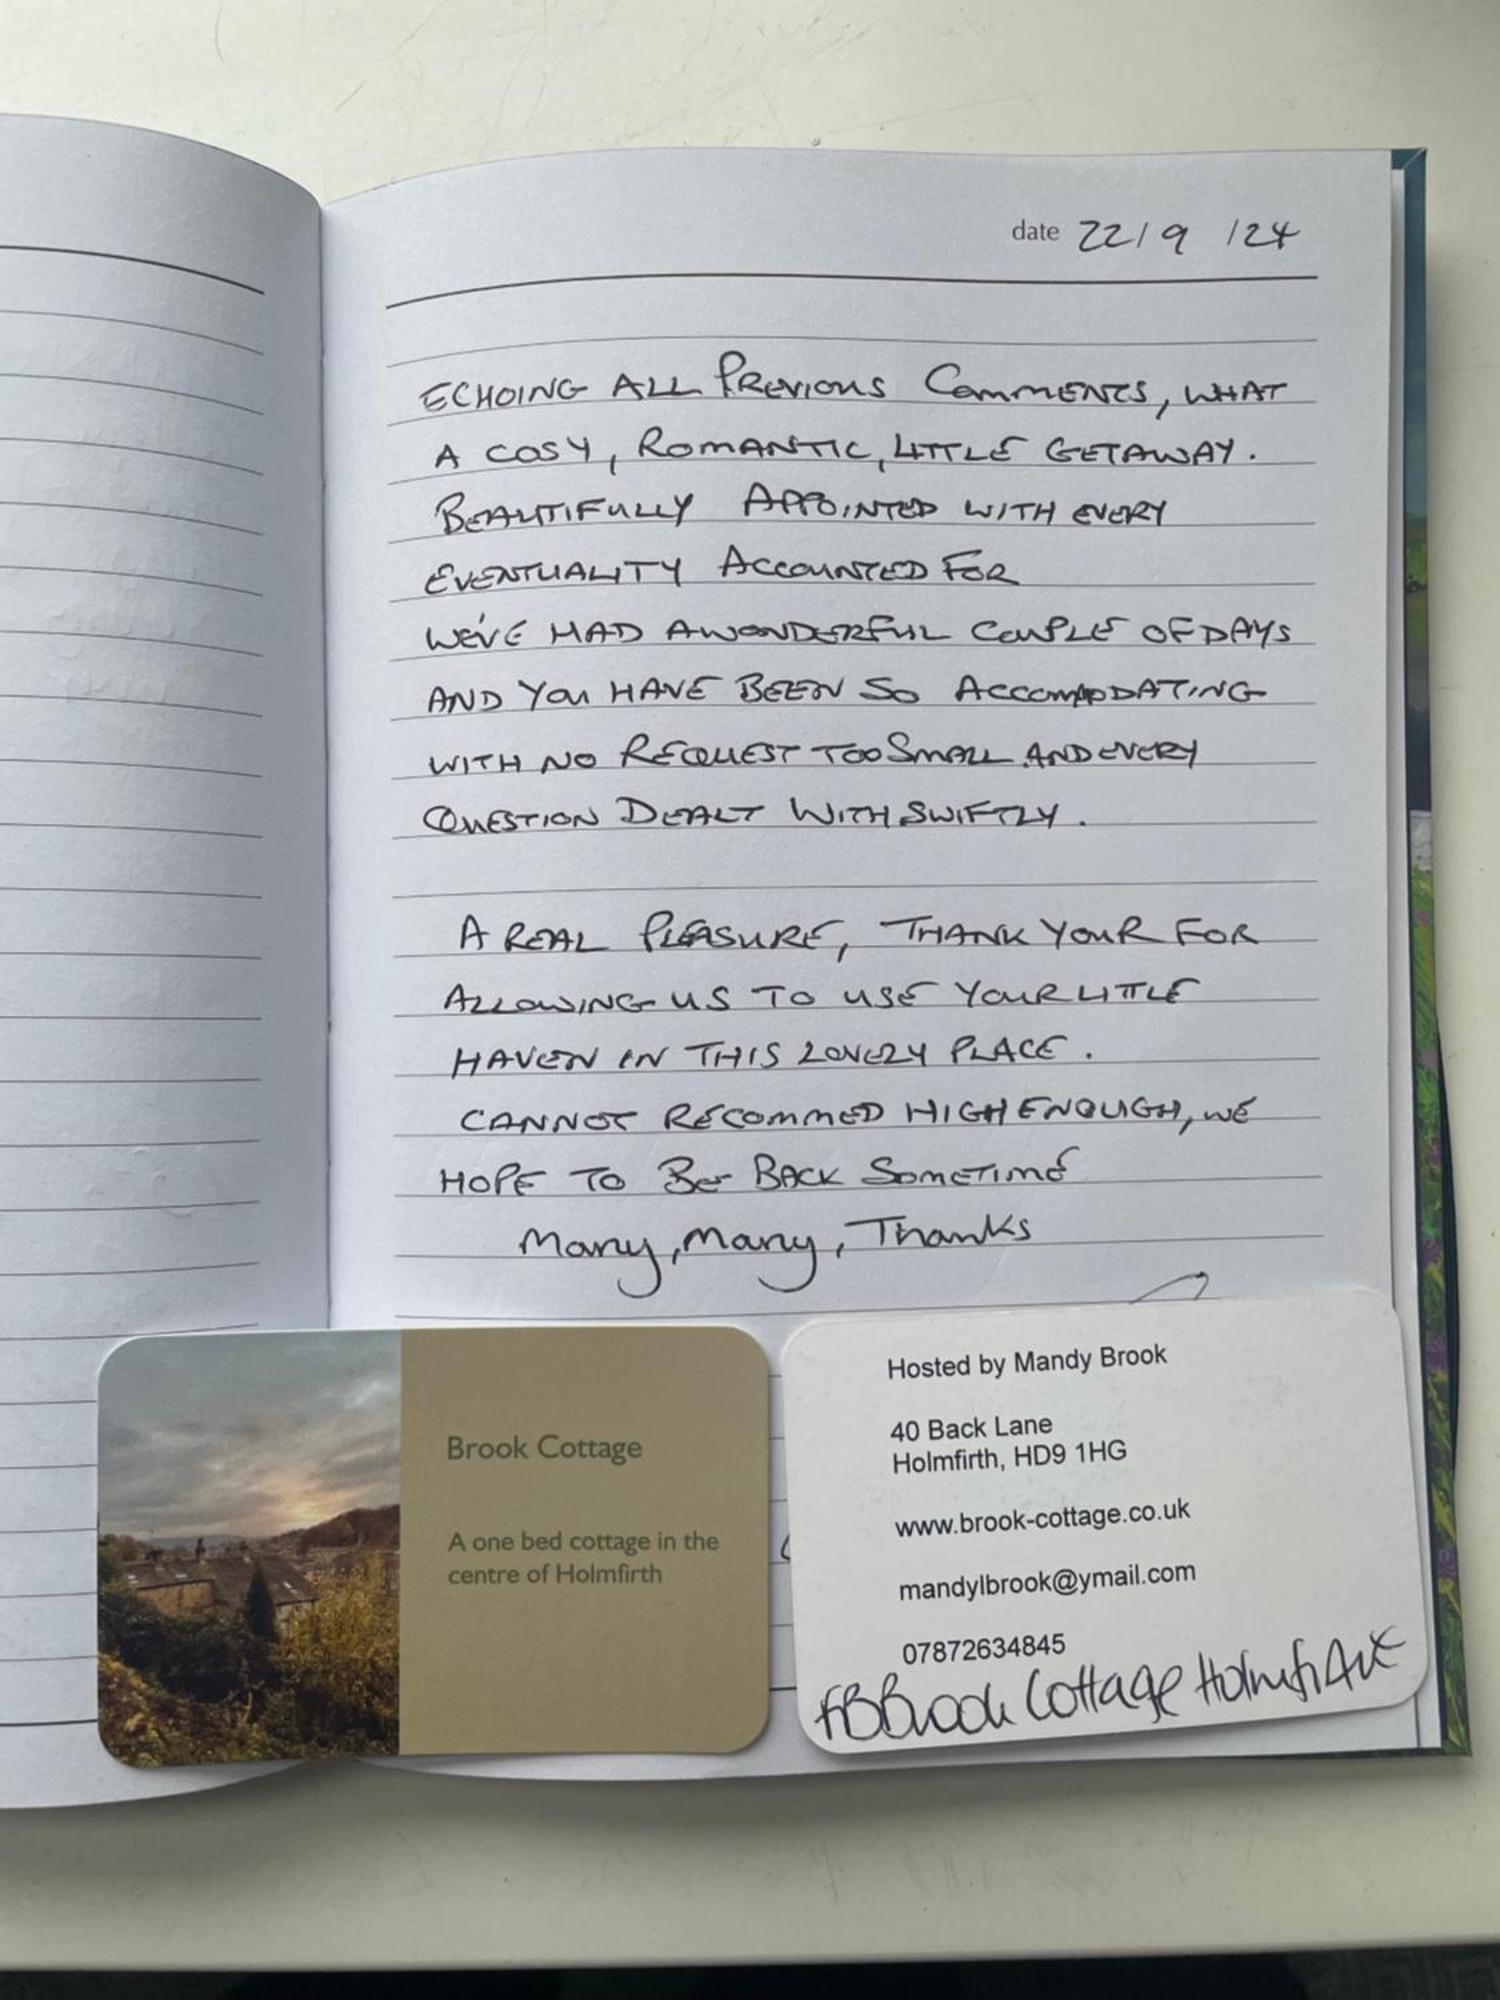 date 22/9/24
ECHOING ALL PREVIOUS COMMENTS, WHAT
A COSY, ROMANTIC, LITTLE GETAWAY.
BEAUTIFULLY APPOINTED WITH EVERY
EVENTUALITY ACCOUNTED FOR
WE'VE HAD A WONDERFUL COUPLE OF DAYS
AND YOU HAVE BEEN SO ACCOMODATING
WITH NO REQUEST TOO SMALL AND EVERY
QUESTION DEALT WITH SWIFTLY.
A REAL PLEASURE, THANK YOUR FOR
ALLOWING US TO USE YOUR LITTLE
HAVEN IN THIS LOVELY PLACE.
CANNOT RECOMMED HIGH ENOUGH, WE
HOPE TO BE BACK SOMETIME
Many, Many, Thanks
Brook Cottage
A one bed cottage in the
centre of Holmfirth
Hosted by Mandy Brook
40 Back Lane
Holmfirth, HD9 1HG
www.brook-cottage.co.uk
mandylbrook@ymail.com
07872634845
Brook Cottage